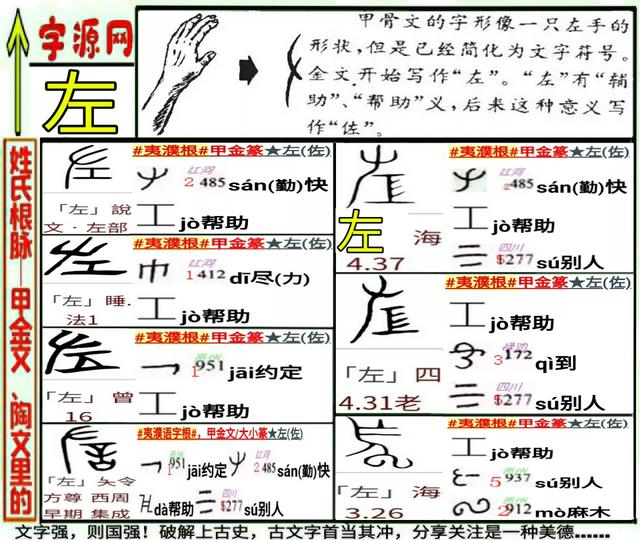 字源网
左
甲骨文的字形像一只左手的
形状，但是已经简化为文字符号。
金文开始写作“左”。“左”有“辅
助”、“帮助”义，后来这种意义写
作“佐”。
姓氏根脉—甲金文、陶文里的
#夷濮根#甲金篆★左(佐)
红河
2 485 sán(勤)快
工 jò帮助
「左」說
文·左部
#夷濮根#甲金篆★左(佐)
红河
1 412 dī尽(力)
工 jò帮助
「左」睡.
法1
#夷濮根#甲金篆★左(佐)
贵州
1 951 jāi约定
工 jò帮助
「左」曾
16
#夷濮语字根#，甲金文/大小篆★左(佐)
贵州
1 951 jāi约定
红河
2 485 sán(勤)快
dà帮助
四川
$277 sú别人
「左」矢令
方尊 西周
早期 集成
#夷濮根#甲金篆★左(佐)
红河
2 485 sán(勤)快
工 jò帮助
四川
$277 sú别人
左 海
4.37
#夷濮根#甲金篆★左(佐)
工 jò帮助
3 172 qì到
四川
$277 sú别人
「左」四
4.31老
#夷濮根#甲金篆★左(佐)
工 jò帮助
5 937 sú别人
2 912 mò麻木
「左」海
3.26
文字强，则国强！破解上古史，古文字首当其冲，分享关注是一种美德......